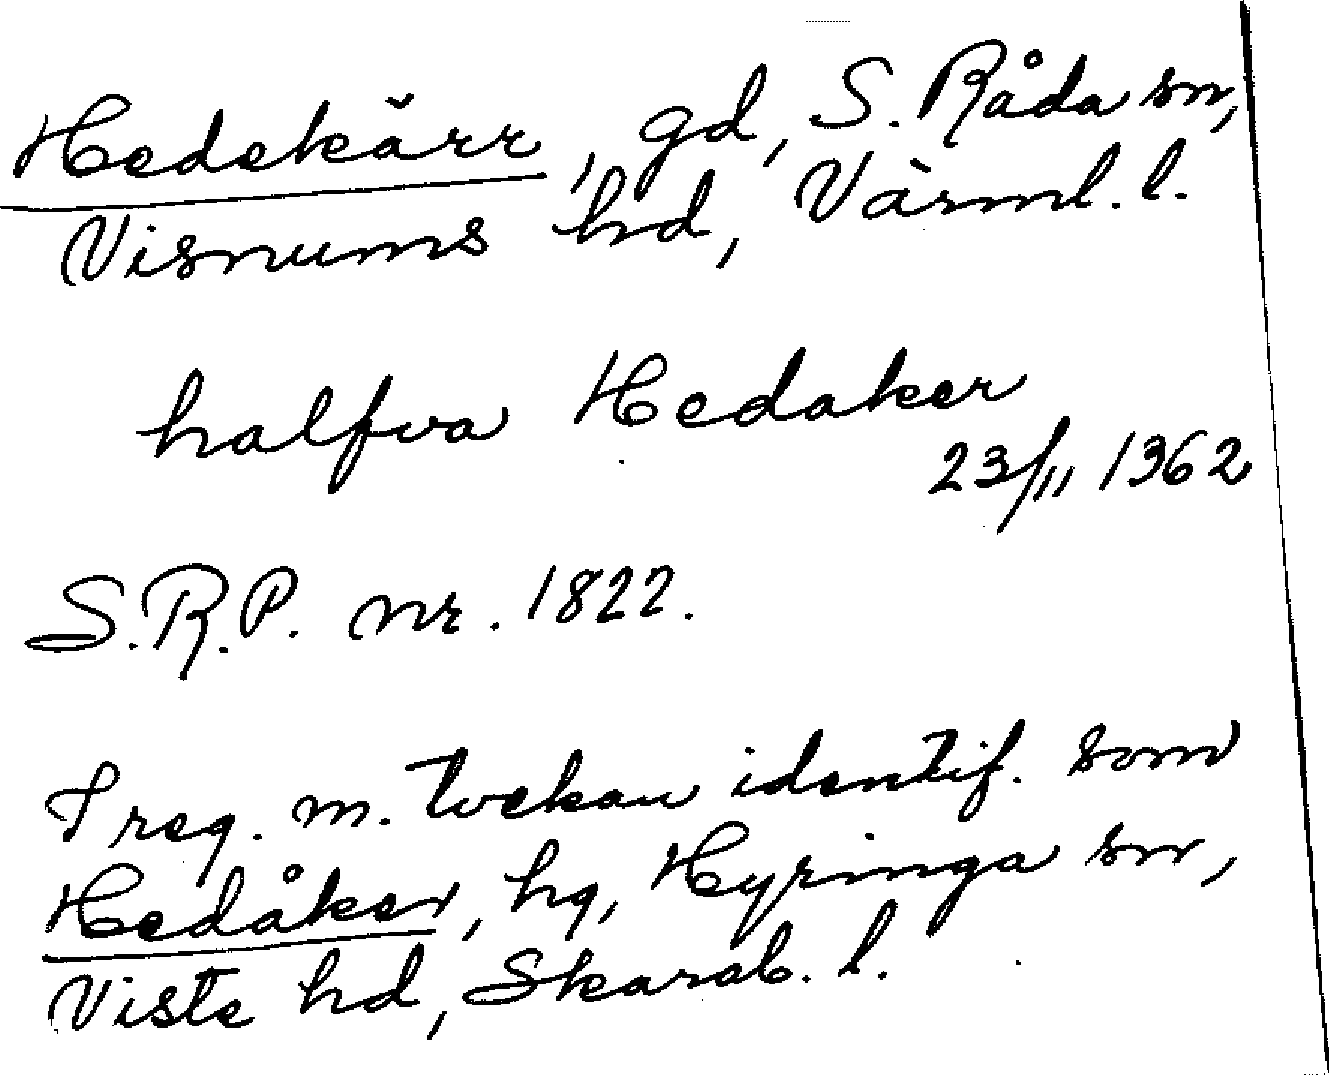 Hedekärr, gd, S. Råda sn,
Visnums hd, Värml. l.
halfva Hedaker
23/11 1362
S.R.P. nr. 1822.
I reg. m. tvekan identif. som
Hedåker, hg, Hyringa sn,
Viste hd, Skarab. l.